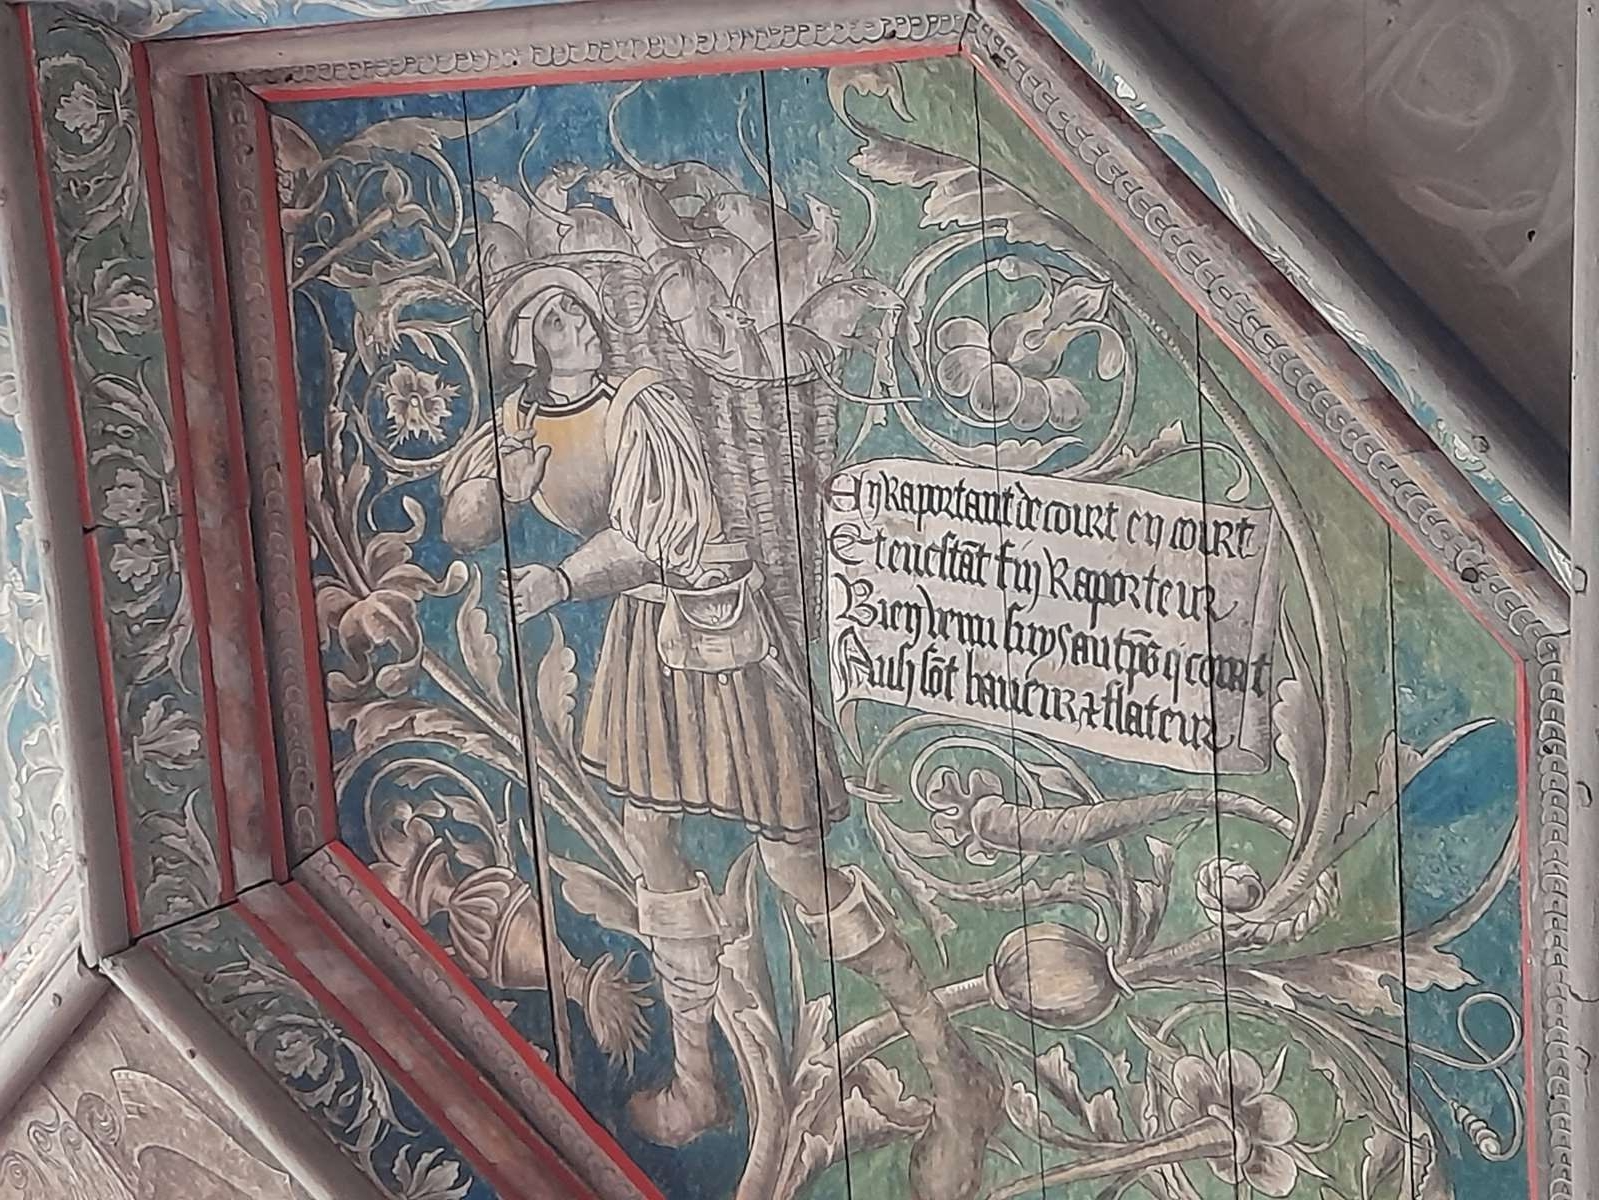 En Raportant de court en court
Et en estāt fin Raporteur
Bien venu suys au tp̄s q̄ court
Aussi sōt baveur & flateur